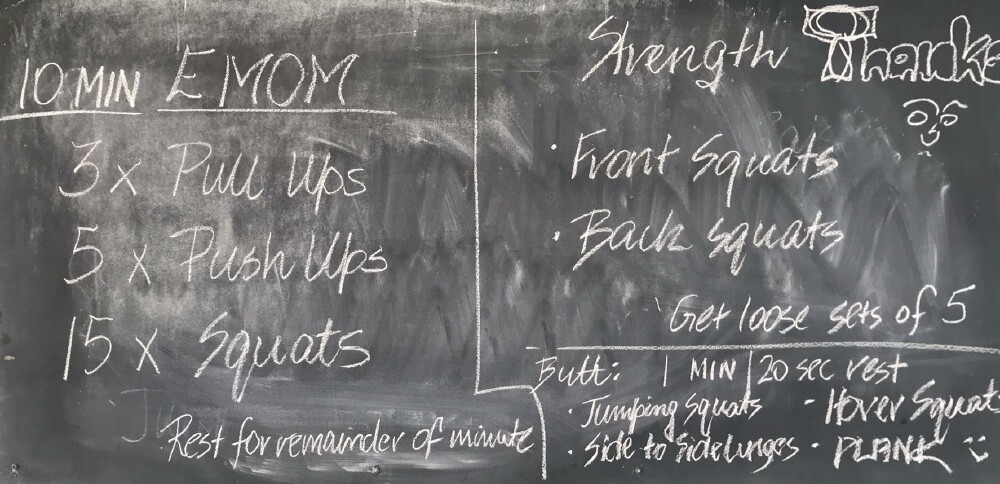 10 MIN EMOM
3 x Pull Ups
5 x Push Ups
15 x Squats
Rest for remainder of minute
Strength
Thanks
· Front Squats
· Back squats
Get loose sets of 5
Butt: 1 MIN | 20 sec rest
· Jumping Squats - Hover Squats
· Side to Side lunges · PLANK